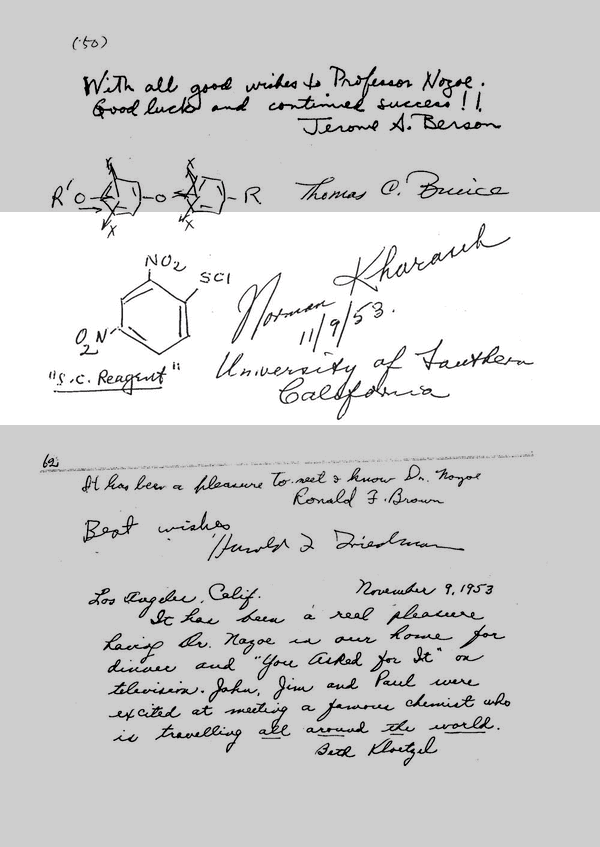 (50)
With all good wishes to Professor Nozoe.
Good luck and continued success!!
Jerome A. Berson
R'O O R X X X X
Thomas C. Bruice
NO2 SCl
O2N
"S.C. Reagent"
Norman Kharasch
11/9/53.
University of Southern
California
62
It has been a pleasure to meet & know Dr. Nozoe
Ronald F. Brown
Best wishes
Harold L Friedman
Los Angeles, Calif. November 9, 1953
It has been a real pleasure
having Dr. Nozoe in our home for
dinner and "You Asked for It" on
television. John, Jim and Paul were
excited at meeting a famous chemist who
is travelling all around the world.
Beth Kloetzel